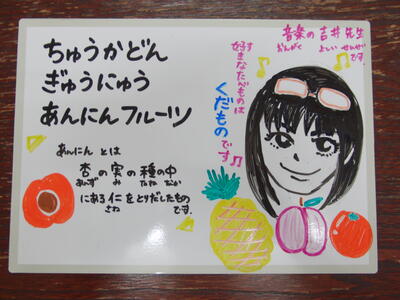 ちゅうかどん
ぎゅうにゅう
あんにんフルーツ
あんにん とは
杏の実の種の中
あんず み たね なか
にある仁をとりだしたもの
さね
です。
音楽の吉井先生
おんがく よしい せんせい
です。
好きなたべものは
す
くだものです♫